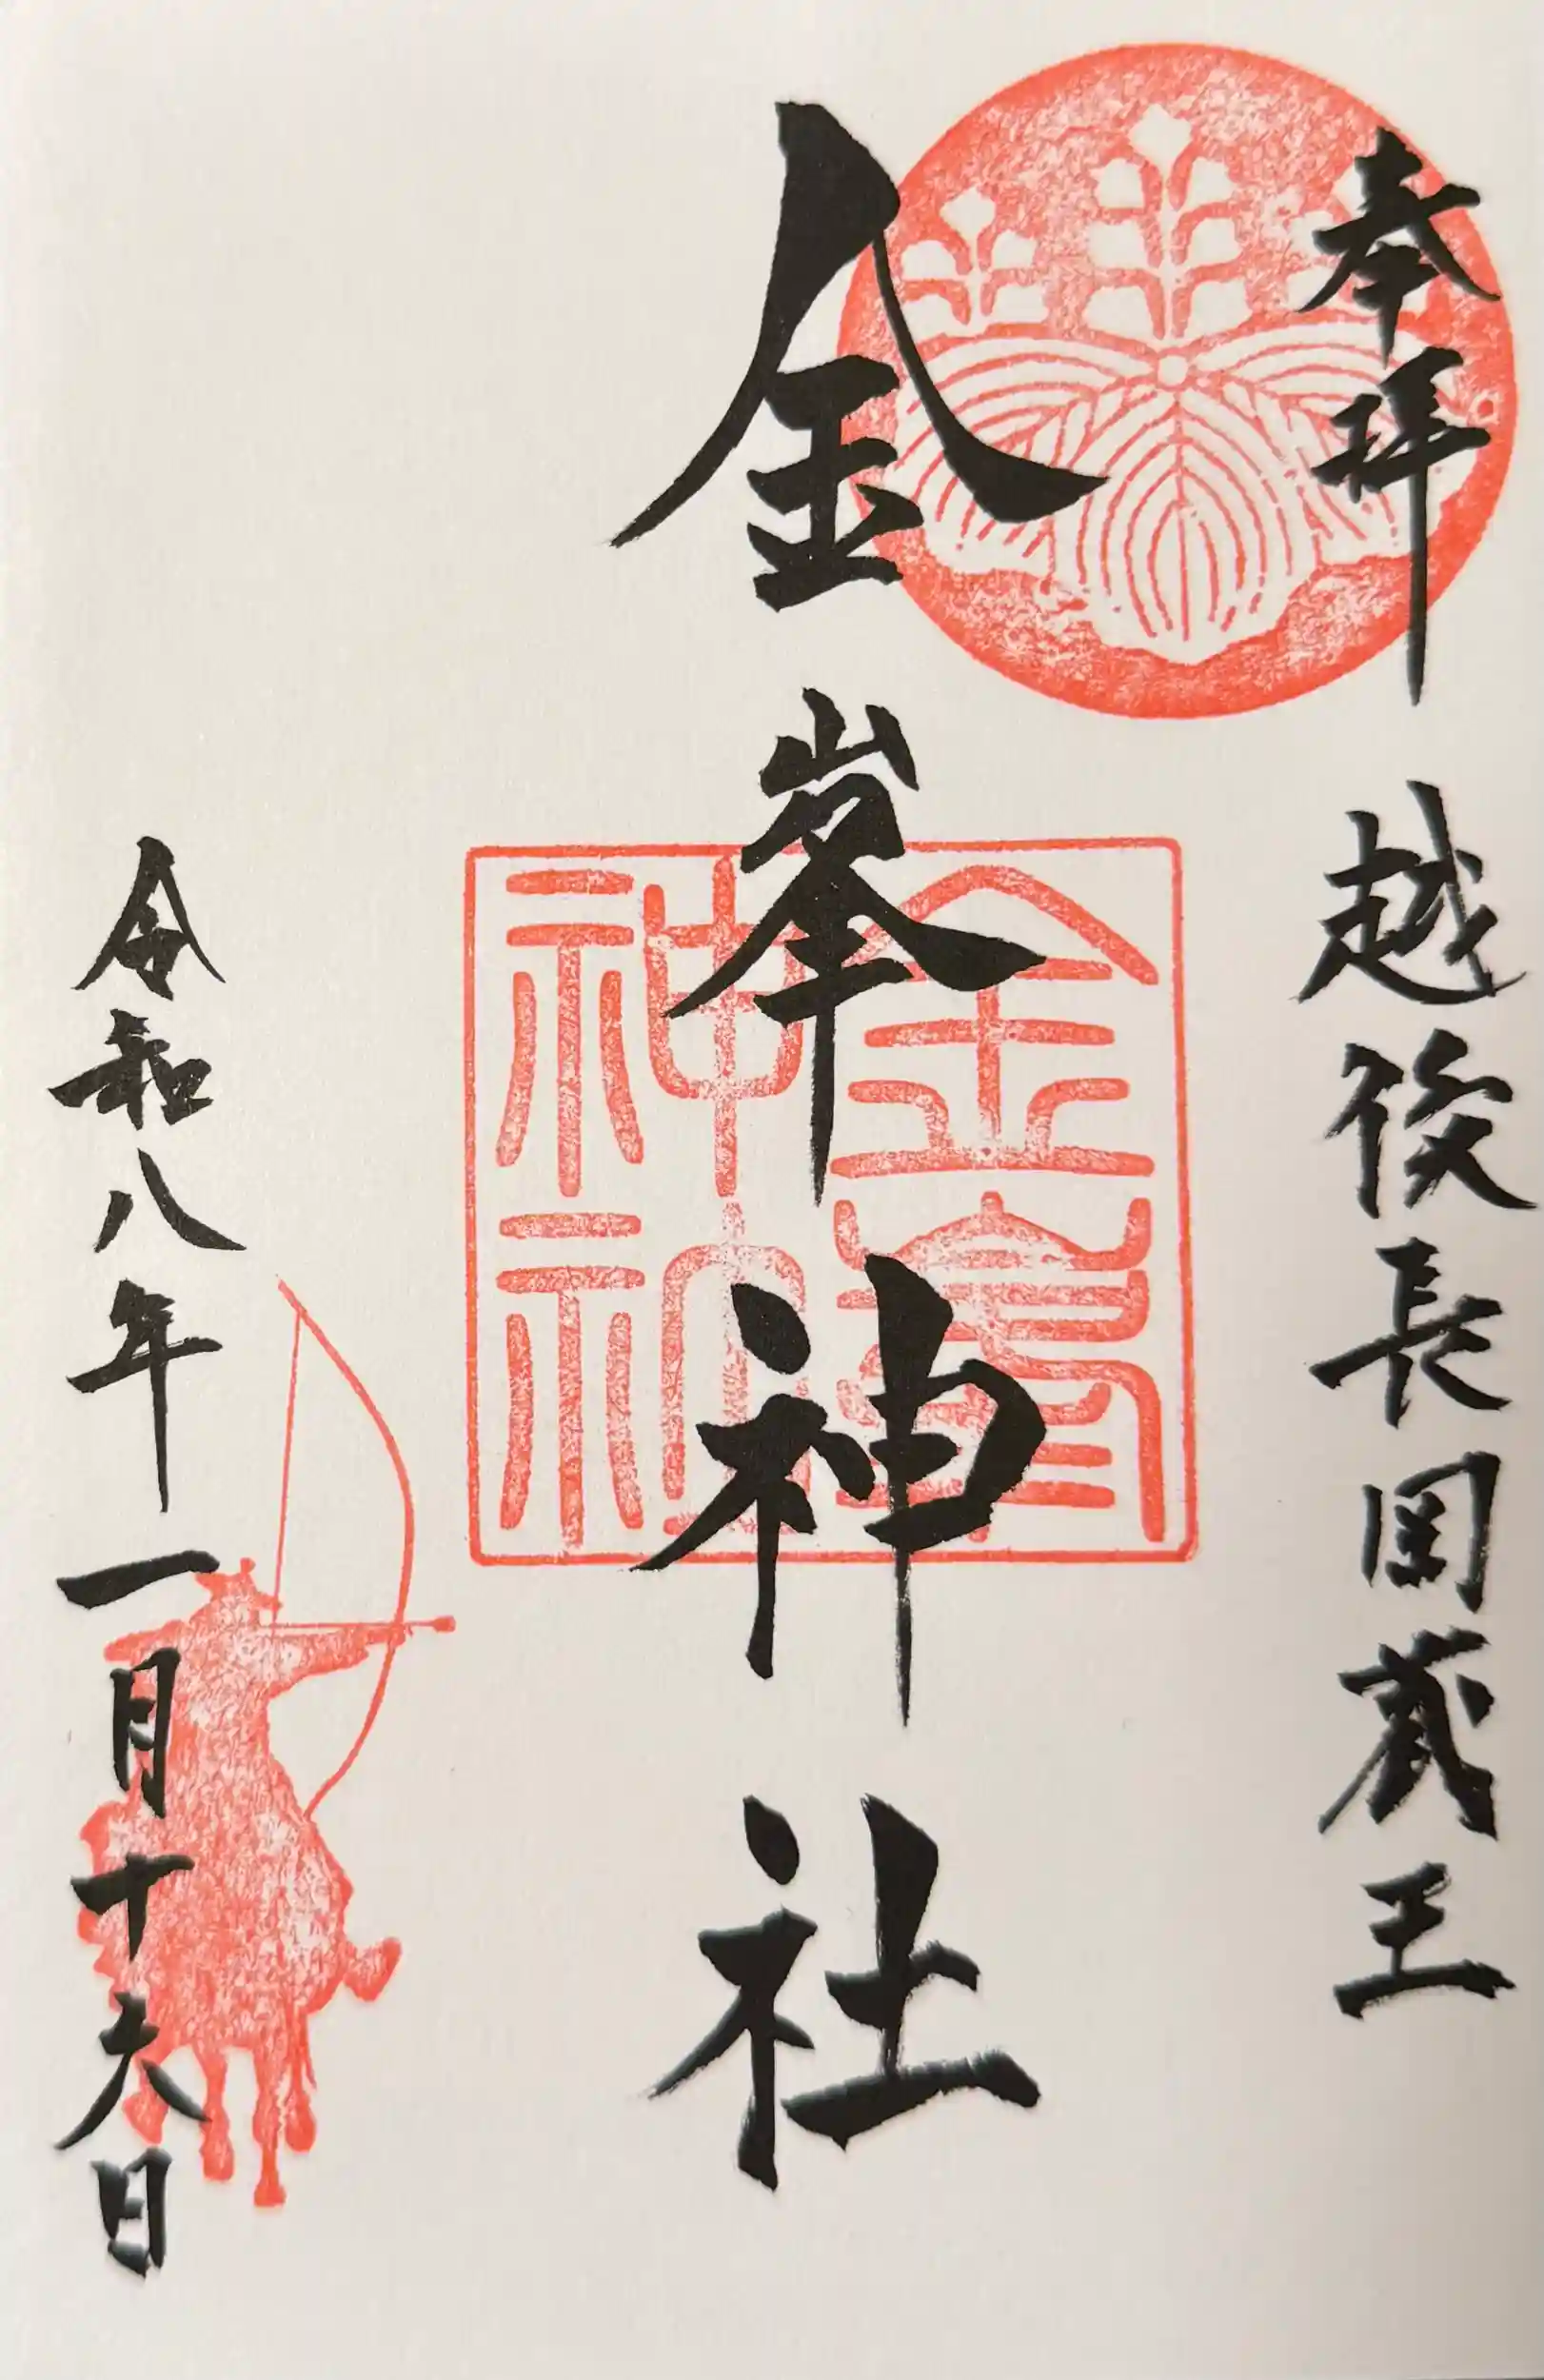 奉拝　越後長岡蔵王
金峯神社
令和八年一月十六日
金峯
神社